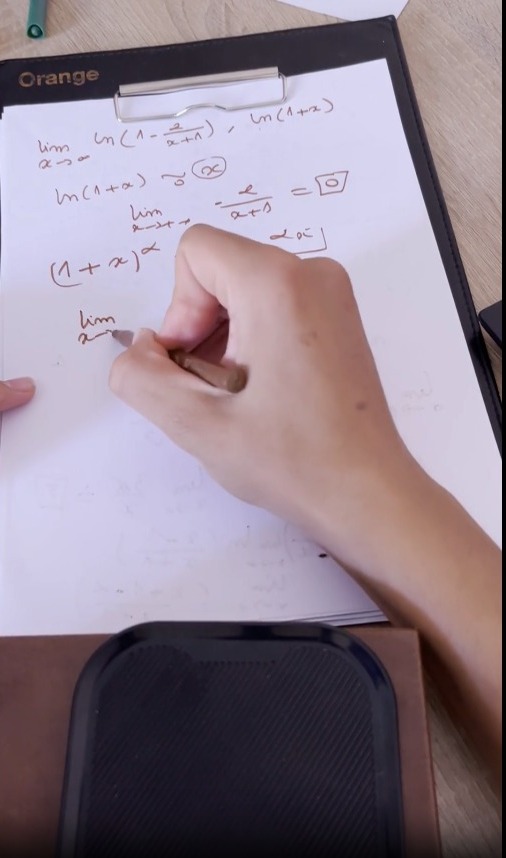 Orange
lim x→∞ ln(1 - 2/(x+1)), ln(1+x)
ln(1+x) ~0 x
lim x→+∞ -2/(x+1) = 0
(1+x)^α αx
lim x→